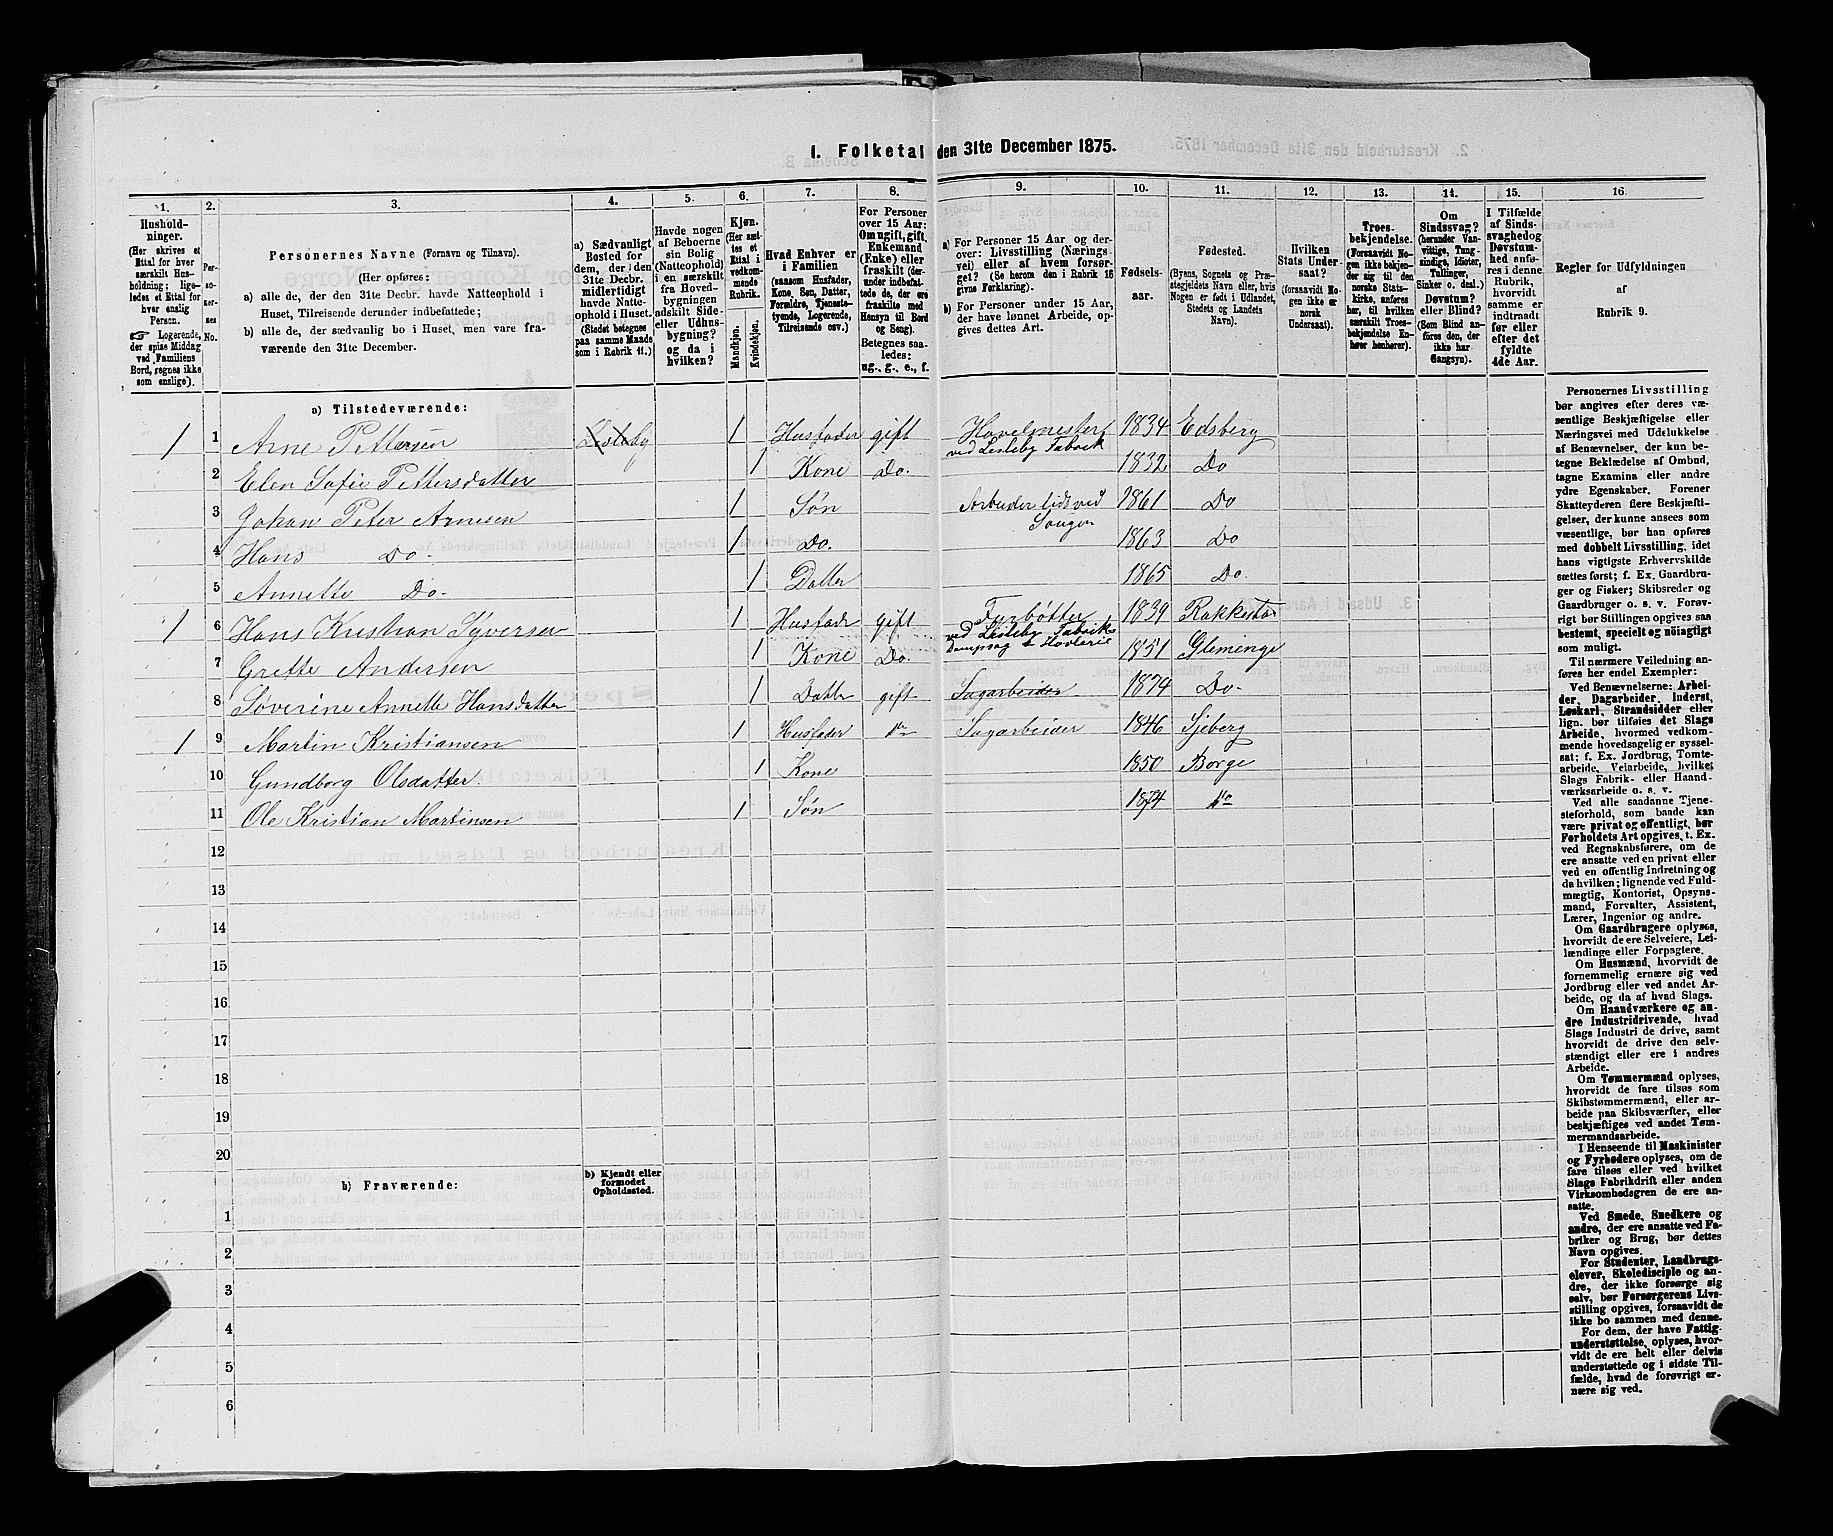 1. Folketal den 31te December 1875.
1. 2. 3. 4. 5. 6. 7. 8. 9. 10. 11. 12. 13. 14. 15. 16.
Hushold-
ninger.
(Her skrives et
Ettal for hver
særskilt Hus-
holdning; lige-
ledes et Ettal for
hver enslig
Person.
☞ Logerende,
der spise Middag
ved Familiens
Bord, regnes ikke
som enslige).
Per-
so-
ner-
nes
No.
Personernes Navne (Fornavn og Tilnavn).
(Her opføres:
a) alle de, der den 31te Decbr. havde Natteophold i
Huset, Tilreisende derunder indbefattede;
b) alle de, der sædvanlig bo i Huset, men vare fra-
værende den 31te December.
a) Sædvanligt
Bosted for
dem, der i den
31te Decbr.
midlertidigt
havde Natte-
ophold i Huset.
(Stedet betegnes
paa samme Maade
som i Rubrik 11.)
Havde nogen
af Beboerne
sin Bolig
(Natteophold)
i en særskilt
fra Hoved-
bygningen
adskilt Side-
eller Udhus-
bygning?
og da i
hvilken?
Kjøn.
(Her sæt-
tes et
Ettal i
vedkom-
mende
Rubrik.
Mandkjøn.
Kvindekjøn.
Hvad Enhver er
i Familien
(saasom Husfader,
Kone, Søn, Datter,
Forældre, Tjeneste-
tyende, Logerende,
Tilreisende osv.)
For Personer
over 15 Aar:
Om ugift, gift,
Enkemand
(Enke) eller
fraskilt (der-
under indbefat-
tede de, der ere
fraskilte med
Hensyn til Bord
og Seng).
Betegnes saa-
ledes:
ug., g., e., f.
a) For Personer 15 Aar og der-
over: Livsstilling (Nærings-
vei) eller af hvem forsør-
get? (Se herom den i Rubrik 16
givne Forklaring).
b) For Personer under 15 Aar,
der have lønnet Arbeide, op-
gives dettes Art.
Fødsels-
aar.
Fødested.
(Byens, Sognets og Præ-
stegjeldets Navn eller, hvis
Nogen er født i Udlandet,
Stedets og Landets
Navn).
Hvilken
Stats Under-
saat?
(forsaavidt No-
gen ikke er
norsk
Undersaat).
Troes-
bekjendelse.
(Forsaavidt No-
gen ikke bekjen-
der sig til den
norske Stats-
kirke, anføres
her, til hvilken
særskilt Troes-
bekjendelse En-
hver henhører).
Om
Sindssvag?
(herunder Van-
vittige, Tung-
sindige, Idioter,
Tullinger,
Sinker o. desl.)
Døvstum?
eller Blind?
(Som Blind an-
føres den, der
ikke har
Gangsyn).
I Tilfælde
af Sinds-
svaghed og
Døvstum-
hed anfø-
res i denne
Rubrik,
hvorvidt
samme er
indtraadt
før eller
efter det
fyldte
4de Aar.
Regler for Udfyldningen
af
Rubrik 9.
a) Tilstedeværende:
1 1 Arne Pettersen Lisleby 1 Husfader gift Høvelmester 1834 Edsberg
ved Lisleby Fabrik
2 Elen Sofie Pettersdatter 1 Kone Do. 1832 Do
3 Johan Peter Arnesen 1 Søn Arbeider tids ved 1861 Do
Saugen
4 Hans Do. 1 Do. 1863 Do
5 Annette Do. 1 Datter 1865 Do.
1 6 Hans Kristian Syversen 1 Husfader gift Fyrbøtter 1839 Rakkestad
ved Lisleby Fabriks
7 Grette Andersen 1 Kone Do. Dampsag & Høvlerie 1851 Gleminge
8 Severine Annette Hansdatter 1 Datter gift Sagarbeider 1874 Do.
1 9 Martin Kristiansen 1 Husfader do Sagarbeider 1846 Sjeberg
10 Gundborg Olsdatter. 1 Kone 1850 Borge
11 Ole Kristian Martinsen 1 Søn 1874 do
12
13
14
15
16
17
18
19
20
b) Fraværende:
b) Kjendt eller
formodet
Opholdssted.
1
2
3
4
5
6
Personernes Livsstilling
bør angives efter deres væ-
sentlige Beskjæftigelse eller
Næringsvei med Udelukkelse
af Benævnelser, der kun be-
tegne Beklædelse af Ombud,
tagne Examina eller andre
ydre Egenskaber. Forener
Skatteyderen flere Beskjæfti-
gelser, der kunne ansees som
væsentlige, bør han opføres
med dobbelt Livsstilling, idet
hans vigtigste Erhvervskilde
sættes først; f. Ex. Gaardbru-
ger og Fisker; Skibsreder og
Gaardbruger o. s. v. Forøv-
rigt bør Stillingen opgives saa
bestemt, specielt og nøiagtigt
som muligt.
Til nærmere Veiledning an-
føres her endel Exempler:
Ved Benævnelserne: Arbei-
der, Dagarbeider, Inderst,
Løskarl, Strandsidder eller
lign. bør tilføies det Slags
Arbeide, hvormed vedkom-
mende hovedsagelig er syssel-
sat; f. Ex. Jordbrug, Tomte-
arbeide, Veiarbeide, hvilket
Slags Fabrik- eller Haand-
værksarbeide o. s. v.
Ved alle saadanne Tjene-
steforhold, som baade kan
være privat og offentligt, bør
Forholdets Art opgives, t. Ex.
ved Regnskabsførere, om de
ere ansatte ved en privat eller
ved en offentlig Indretning og
da hvilken; lignende ved Fuld-
mægtig, Kontorist, Opsyns-
mand, Forvalter, Assistent,
Lærer, Ingeniør og andre.
Om Gaardbrugere oplyses,
hvorvidt de ere Selveiere, Lei-
lændinge eller Forpagtere.
Om Husmænd, hvorvidt de
fornemmelig ernære sig ved
Jordbrug eller ved andet Ar-
beide, og da af hvad Slags.
Om Haandværkere og an-
dre Industridrivende, hvad
Slags Industri de drive, samt
hvorvidt de drive den selv-
stændigt eller ere i andres
Arbeide.
Om Tømmermænd oplyses,
hvorvidt de fare tilsøs som
Skibstømmermænd, eller ar-
beide paa Skibsværfter, eller
beskjæftiges ved andet Tøm-
mermandsarbeide.
I Henseende til Maskinister
og Fyrbødere oplyses, om de
fare tilsøs eller ved hvilket
Slags Fabrikdrift eller anden
Virksomhedsgren de ere an-
satte.
Ved Smede, Snedkere og
andre, der ere ansatte ved Fa-
briker og Brug, bør dettes
Navn opgives.
For Studenter, Landbrugs-
elever, Skoledisciple og an-
dre, der ikke forsørge sig
selv, bør Forsørgerens Livs-
stilling opgives, forsaavidt de
ikke bo sammen med denne.
For dem, der have Fattig-
understøttelse, oplyses, hvor-
vidt de ere helt eller delvis
understøttede og i sidste Til-
fælde, hvad de forøvrigt er-
nære sig ved.